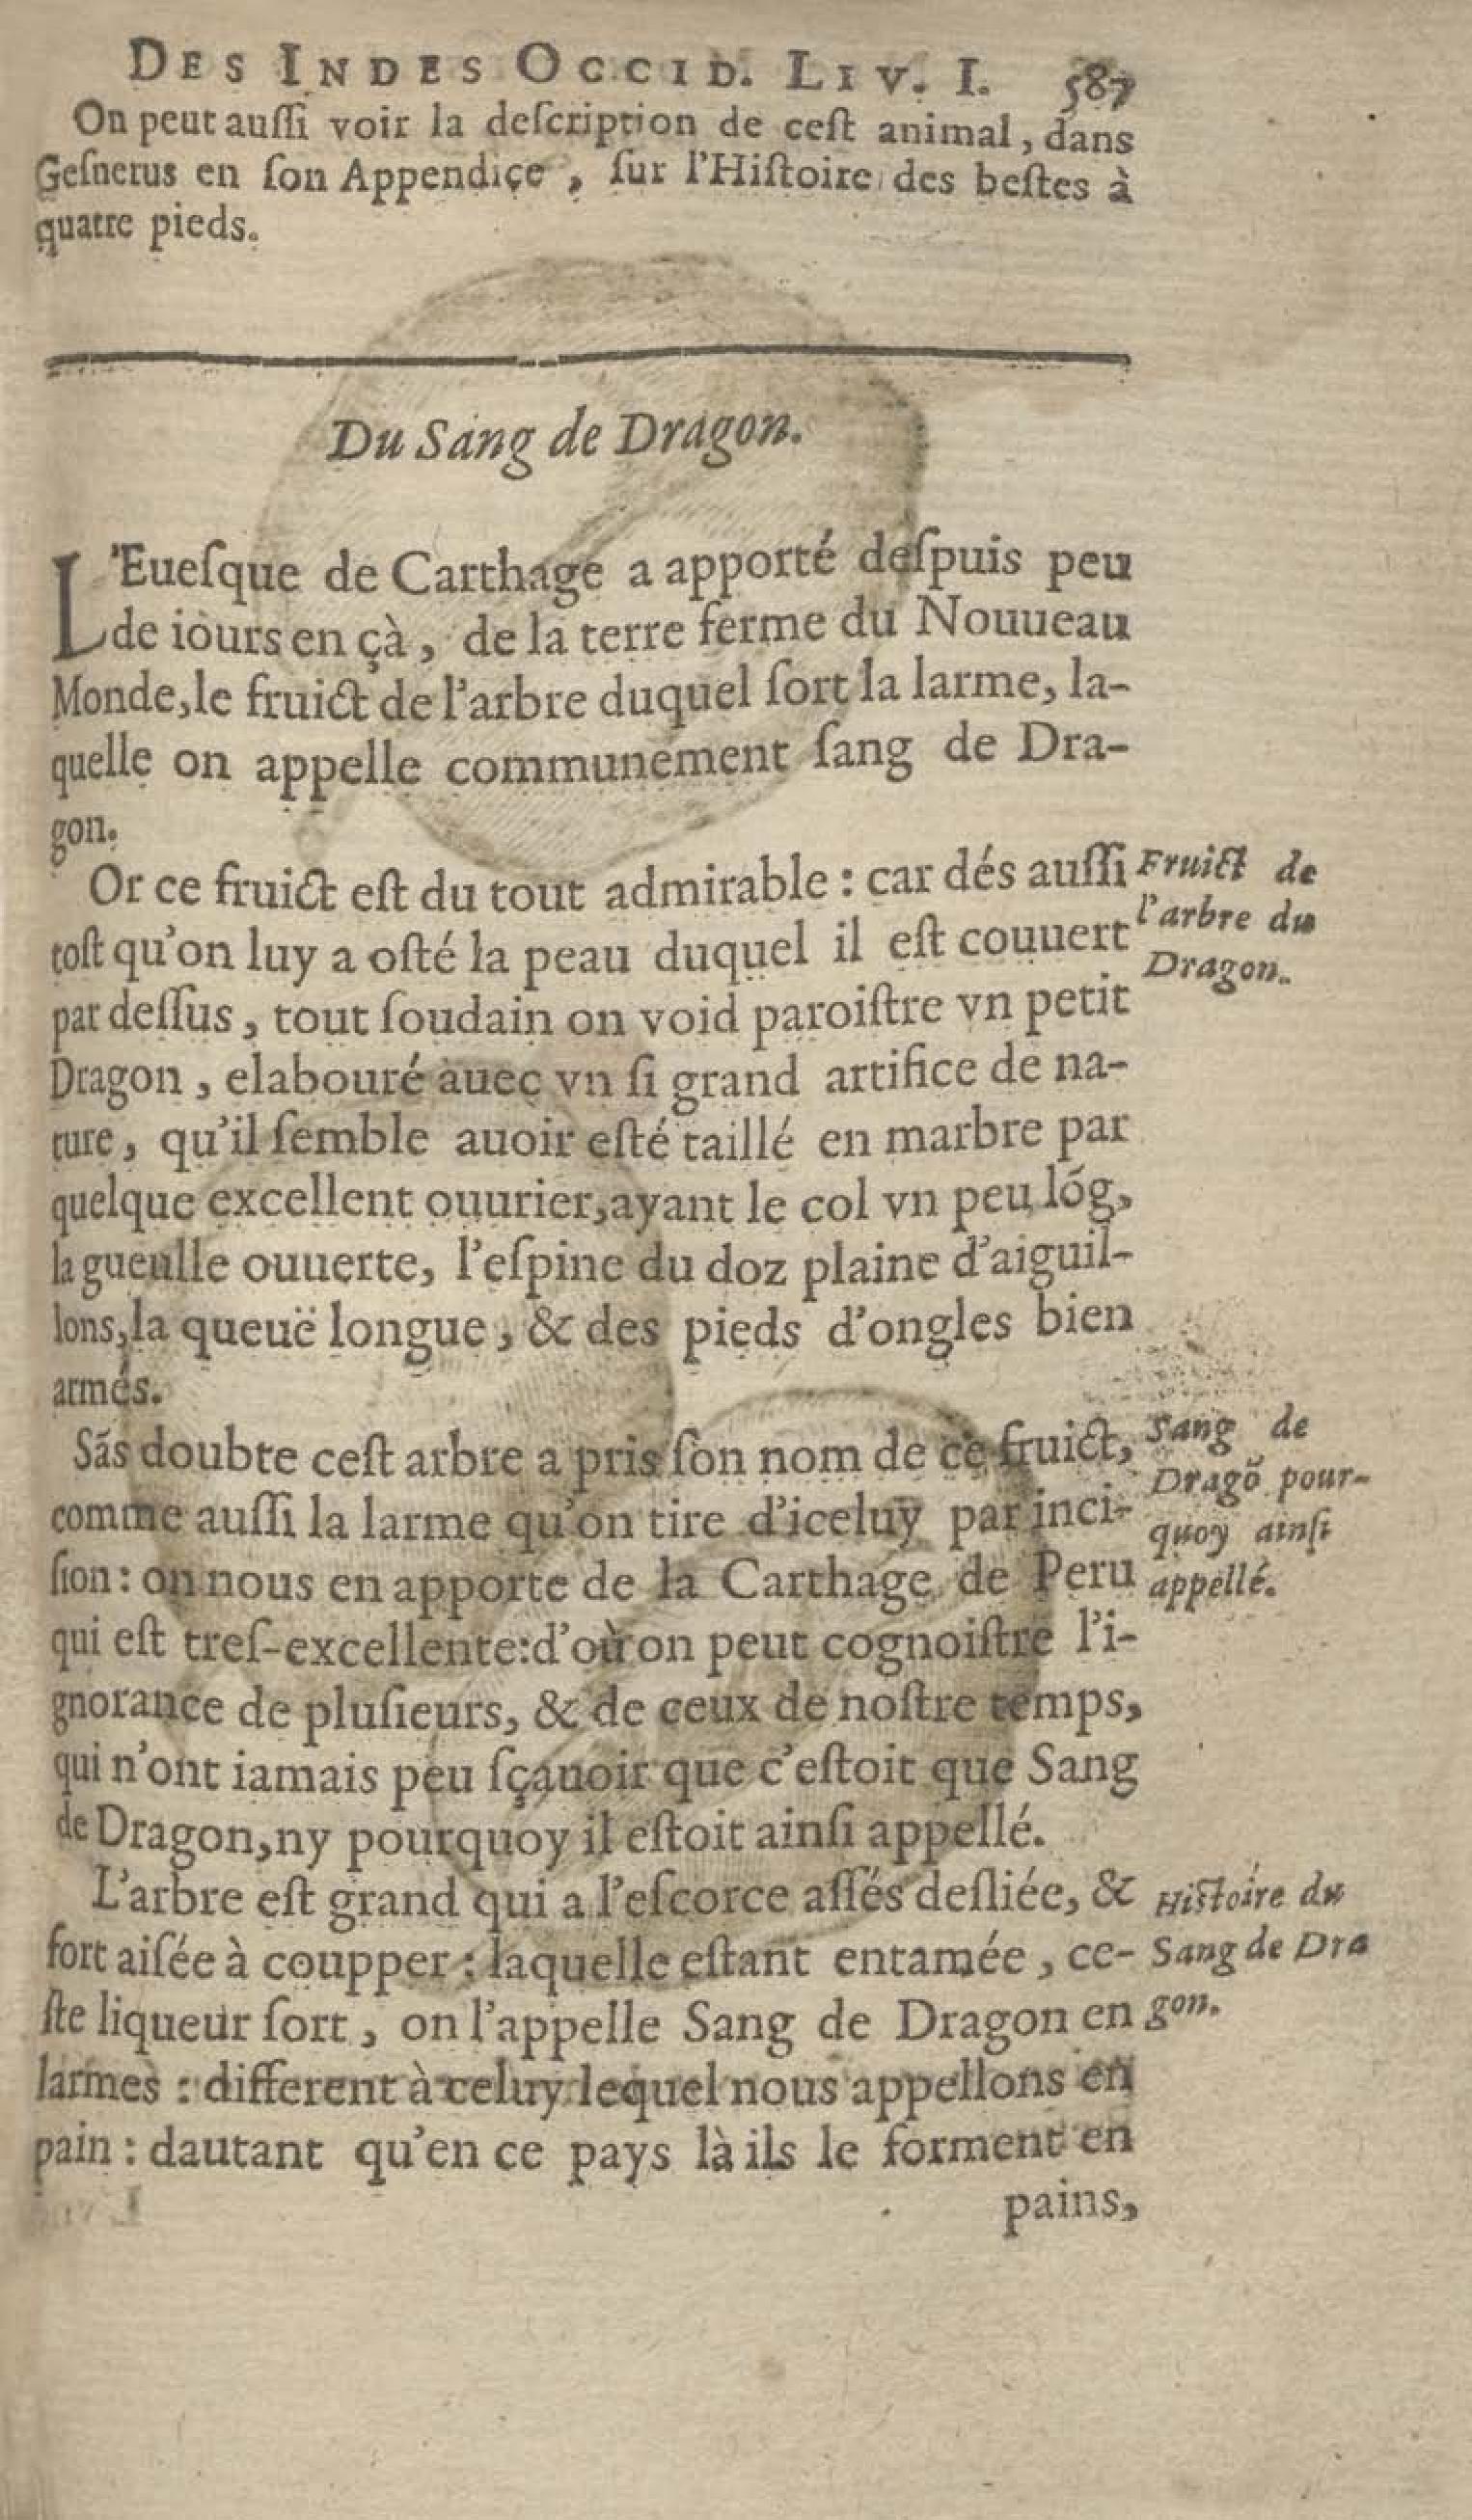 DES INDES OCCID. LIV. I. 587
On peut aussi voir la description de cest animal, dans
Gesnerus en son Appendiçe, sur l'Histoire des bestes à
quatre pieds.
Du Sang de Dragon.
L'Euesque de Carthage a apporté despuis peu
de iours en çà, de la terre ferme du Nouueau
Monde, le fruict de l'arbre duquel sort la larme, la-
quelle on appelle communement sang de Dra-
gon.
Or ce fruict est du tout admirable : car dés aussi
tost qu'on luy a osté la peau duquel il est couuert
par dessus, tout soudain on void paroistre vn petit
Dragon, elabouré auec vn si grand artifice de na-
ture, qu'il semble auoir esté taillé en marbre par
quelque excellent ouurier, ayant le col vn peu lóg,
la gueulle ouuerte, l'espine du doz plaine d'aiguil-
lons, la queuë longue, & des pieds d'ongles bien
armés.
Fruict de
l'arbre du
Dragon.
Sãs doubte cest arbre a pris son nom de ce fruict,
comme aussi la larme qu'on tire d'iceluy par inci-
sion : on nous en apporte de la Carthage de Peru
qui est tres-excellente: d'où on peut cognoistre l'i-
gnorance de plusieurs, & de ceux de nostre temps,
qui n'ont iamais peu sçauoir que c'estoit que Sang
de Dragon, ny pourquoy il estoit ainsi appellé.
Sang de
Dragõ pour-
quoy ainsi
appellé.
L'arbre est grand qui a l'escorce assés desliée, &
fort aisée à coupper : laquelle estant entamée, ce-
ste liqueur sort, on l'appelle Sang de Dragon en
larmes : different à celuy lequel nous appellons en
pain : dautant qu'en ce pays là ils le forment en
Histoire du
Sang de Dra
gon.
pains,